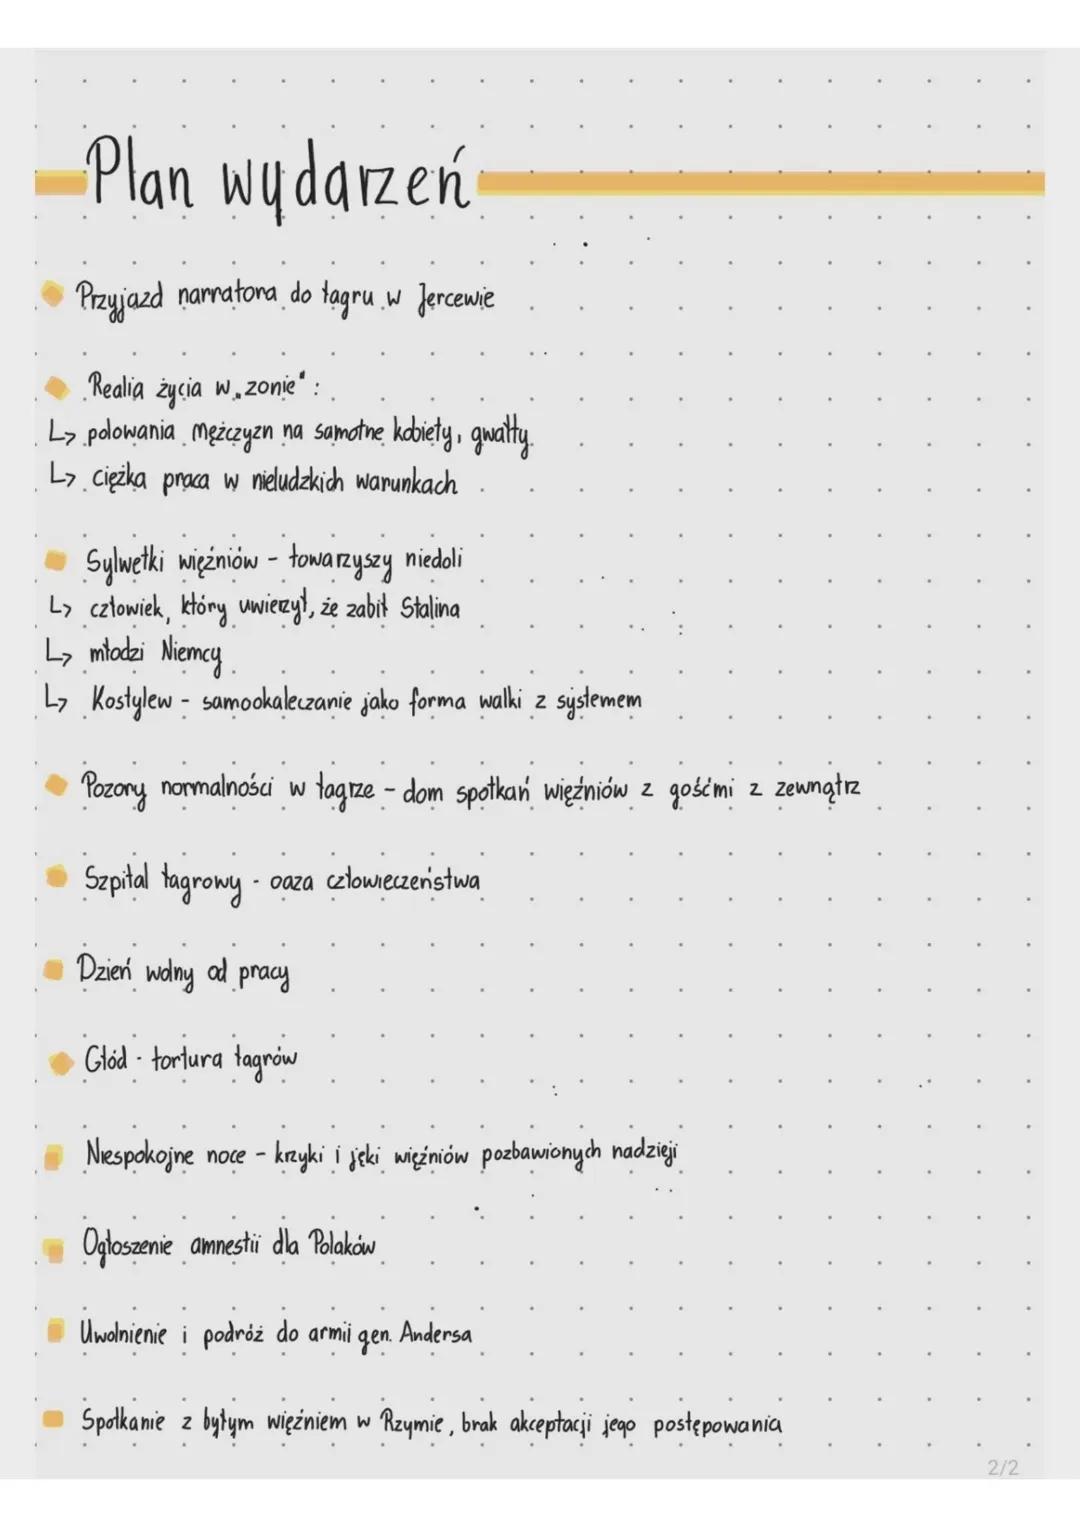 Plan wydarzeń
Przyjazd narratora do łagru w Jercewie
Realia życia w „zonie":
↳ polowania mężczyzn na samotne kobiety, gwałty
↳ ciężka praca w nieludzkich warunkach
Sylwetki więźniów - towarzyszy niedoli
↳ człowiek, który uwierzył, że zabił Stalina
↳ młodzi Niemcy
↳ Kostylew - samookaleczanie jako forma walki z systemem
Pozory normalności w łagrze - dom spotkań więźniów z gośćmi z zewnątrz
Szpital łagrowy - oaza człowieczeństwa
Dzień wolny od pracy
Głód - tortura łagrów
Niespokojne noce - krzyki i jęki więźniów pozbawionych nadzieji
Ogłoszenie amnestii dla Polaków
Uwolnienie i podróż do armii gen. Andersa
Spotkanie z byłym więźniem w Rzymie, brak akceptacji jego postępowania
2/2